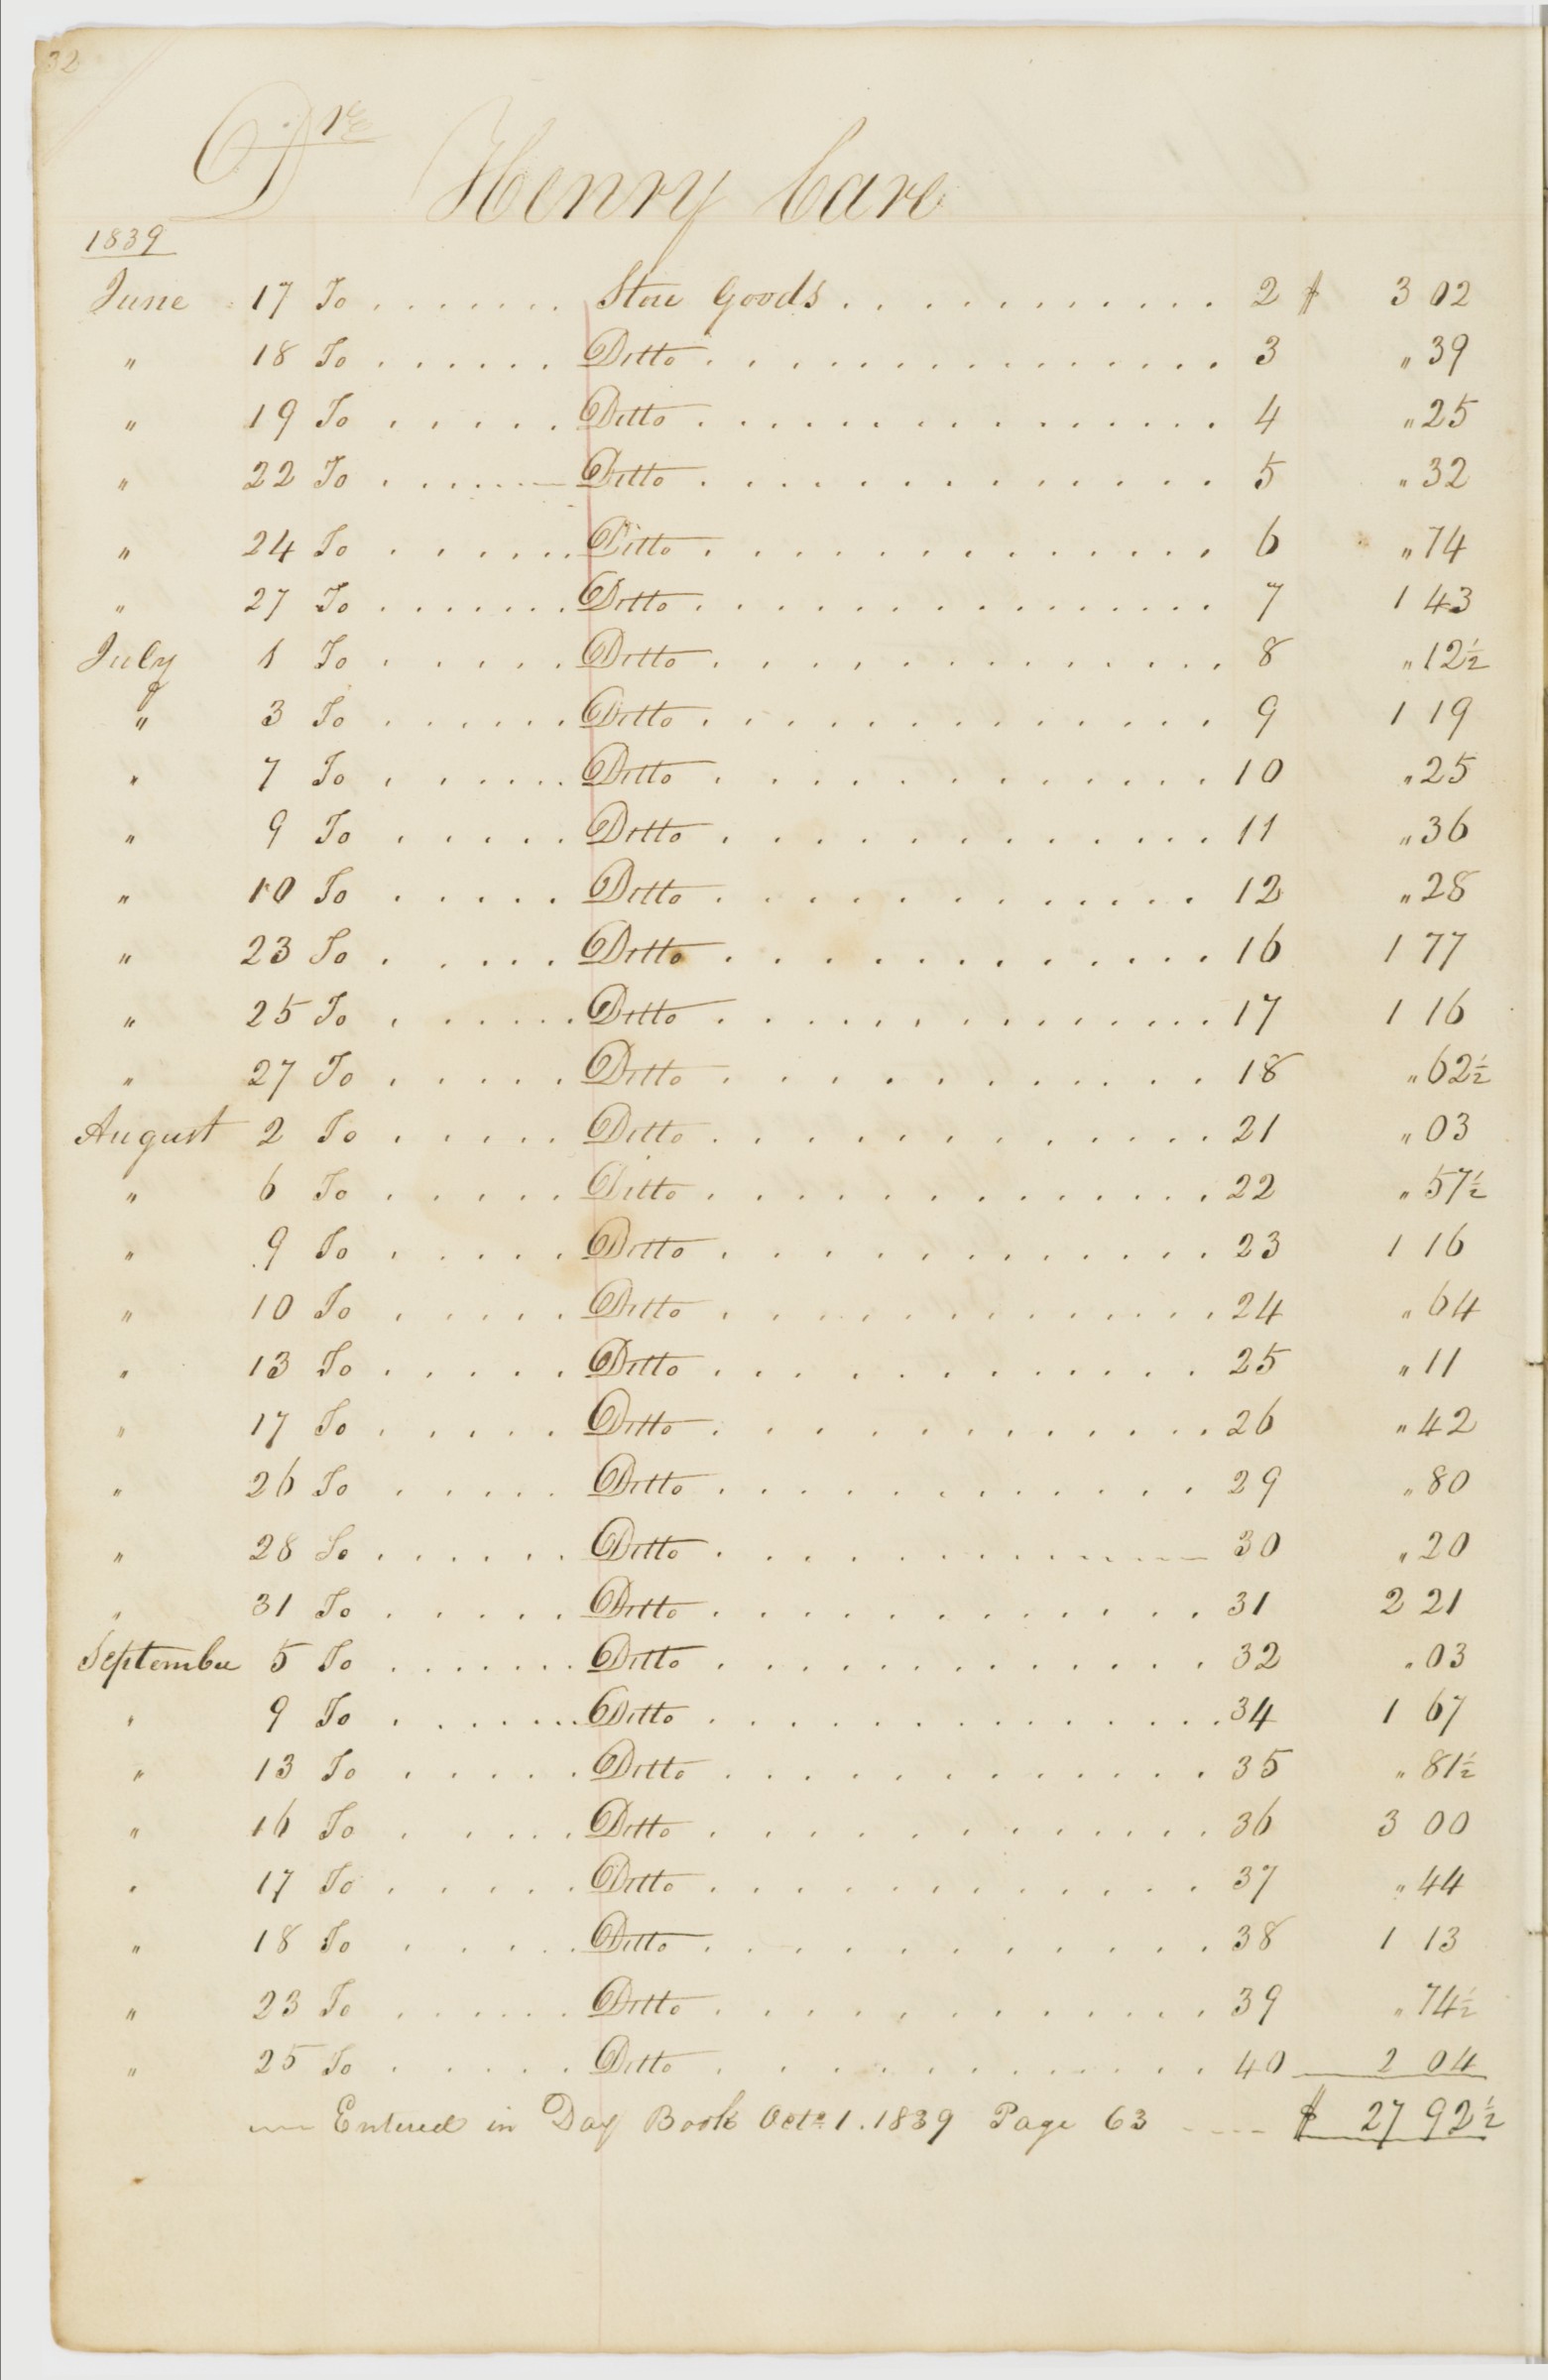 32
Dr Henry Care
1839
June 17 To . . . . . . . Store Goods . . . . . . . . . . . 2 $ 3 02
" 18 To . . . . . . Ditto . . . . . . . . . . . . . . 3 " 39
" 19 To . . . . . Ditto . . . . . . . . . . . . . 4 " 25
" 22 To . . . . . . Ditto . . . . . . . . . . . . 5 " 32
" 24 To . . . . . . Ditto . . . . . . . . . . . . 6 " 74
" 27 To . . . . . . . Ditto . . . . . . . . . . . . . . 7 1 43
July 1 To . . . . . Ditto . . . . . . . . . . . . . 8 " 12½
" 3 To . . . . . . Ditto . . . . . . . . . . . . 9 1 19
" 7 To . . . . . . Ditto . . . . . . . . . . . . 10 " 25
" 9 To . . . . . Ditto . . . . . . . . . . . . 11 " 36
" 10 To . . . . . Ditto . . . . . . . . . . . . 12 " 28
" 23 To . . . . . Ditto . . . . . . . . . . . . 16 1 77
" 25 To . . . . . . Ditto . . . . . . . . . . . . . . 17 1 16
" 27 To . . . . . Ditto . . . . . . . . . . . 18 " 62½
August 2 To . . . . . Ditto . . . . . . . . . . . . 21 " 03
" 6 To . . . . . Ditto . . . . . . . . . . . . . 22 " 57½
" 9 To . . . . . Ditto . . . . . . . . . . . . 23 1 16
" 10 To . . . . . Ditto . . . . . . . . . . . . . 24 " 64
" 13 To . . . . . Ditto . . . . . . . . . . . . 25 " 11
" 17 To . . . . . Ditto . . . . . . . . . . . . . 26 " 42
" 26 To . . . . . Ditto . . . . . . . . . . . . 29 " 80
" 28 To . . . . . . Ditto . . . . . . . . . . . . 30 " 20
" 31 To . . . . . Ditto . . . . . . . . . . . . 31 2 21
September 5 To . . . . . . . Ditto . . . . . . . . . . . . . 32 " 03
" 9 To . . . . . . . Ditto . . . . . . . . . . . . . . 34 1 67
" 13 To . . . . . Ditto . . . . . . . . . . . . 35 " 81½
" 16 To . . . . . Ditto . . . . . . . . . . . . 36 3 00
" 17 To . . . . . Ditto . . . . . . . . . . . . 37 " 44
" 18 To . . . . . Ditto . . . . . . . . . . . . 38 1 13
" 23 To . . . . . Ditto . . . . . . . . . . . . 39 " 74½
" 25 To . . . . . Ditto . . . . . . . . . . . . 40 2 04
Entered in Day Book Octo 1. 1839 Page 63 $ 27 92½